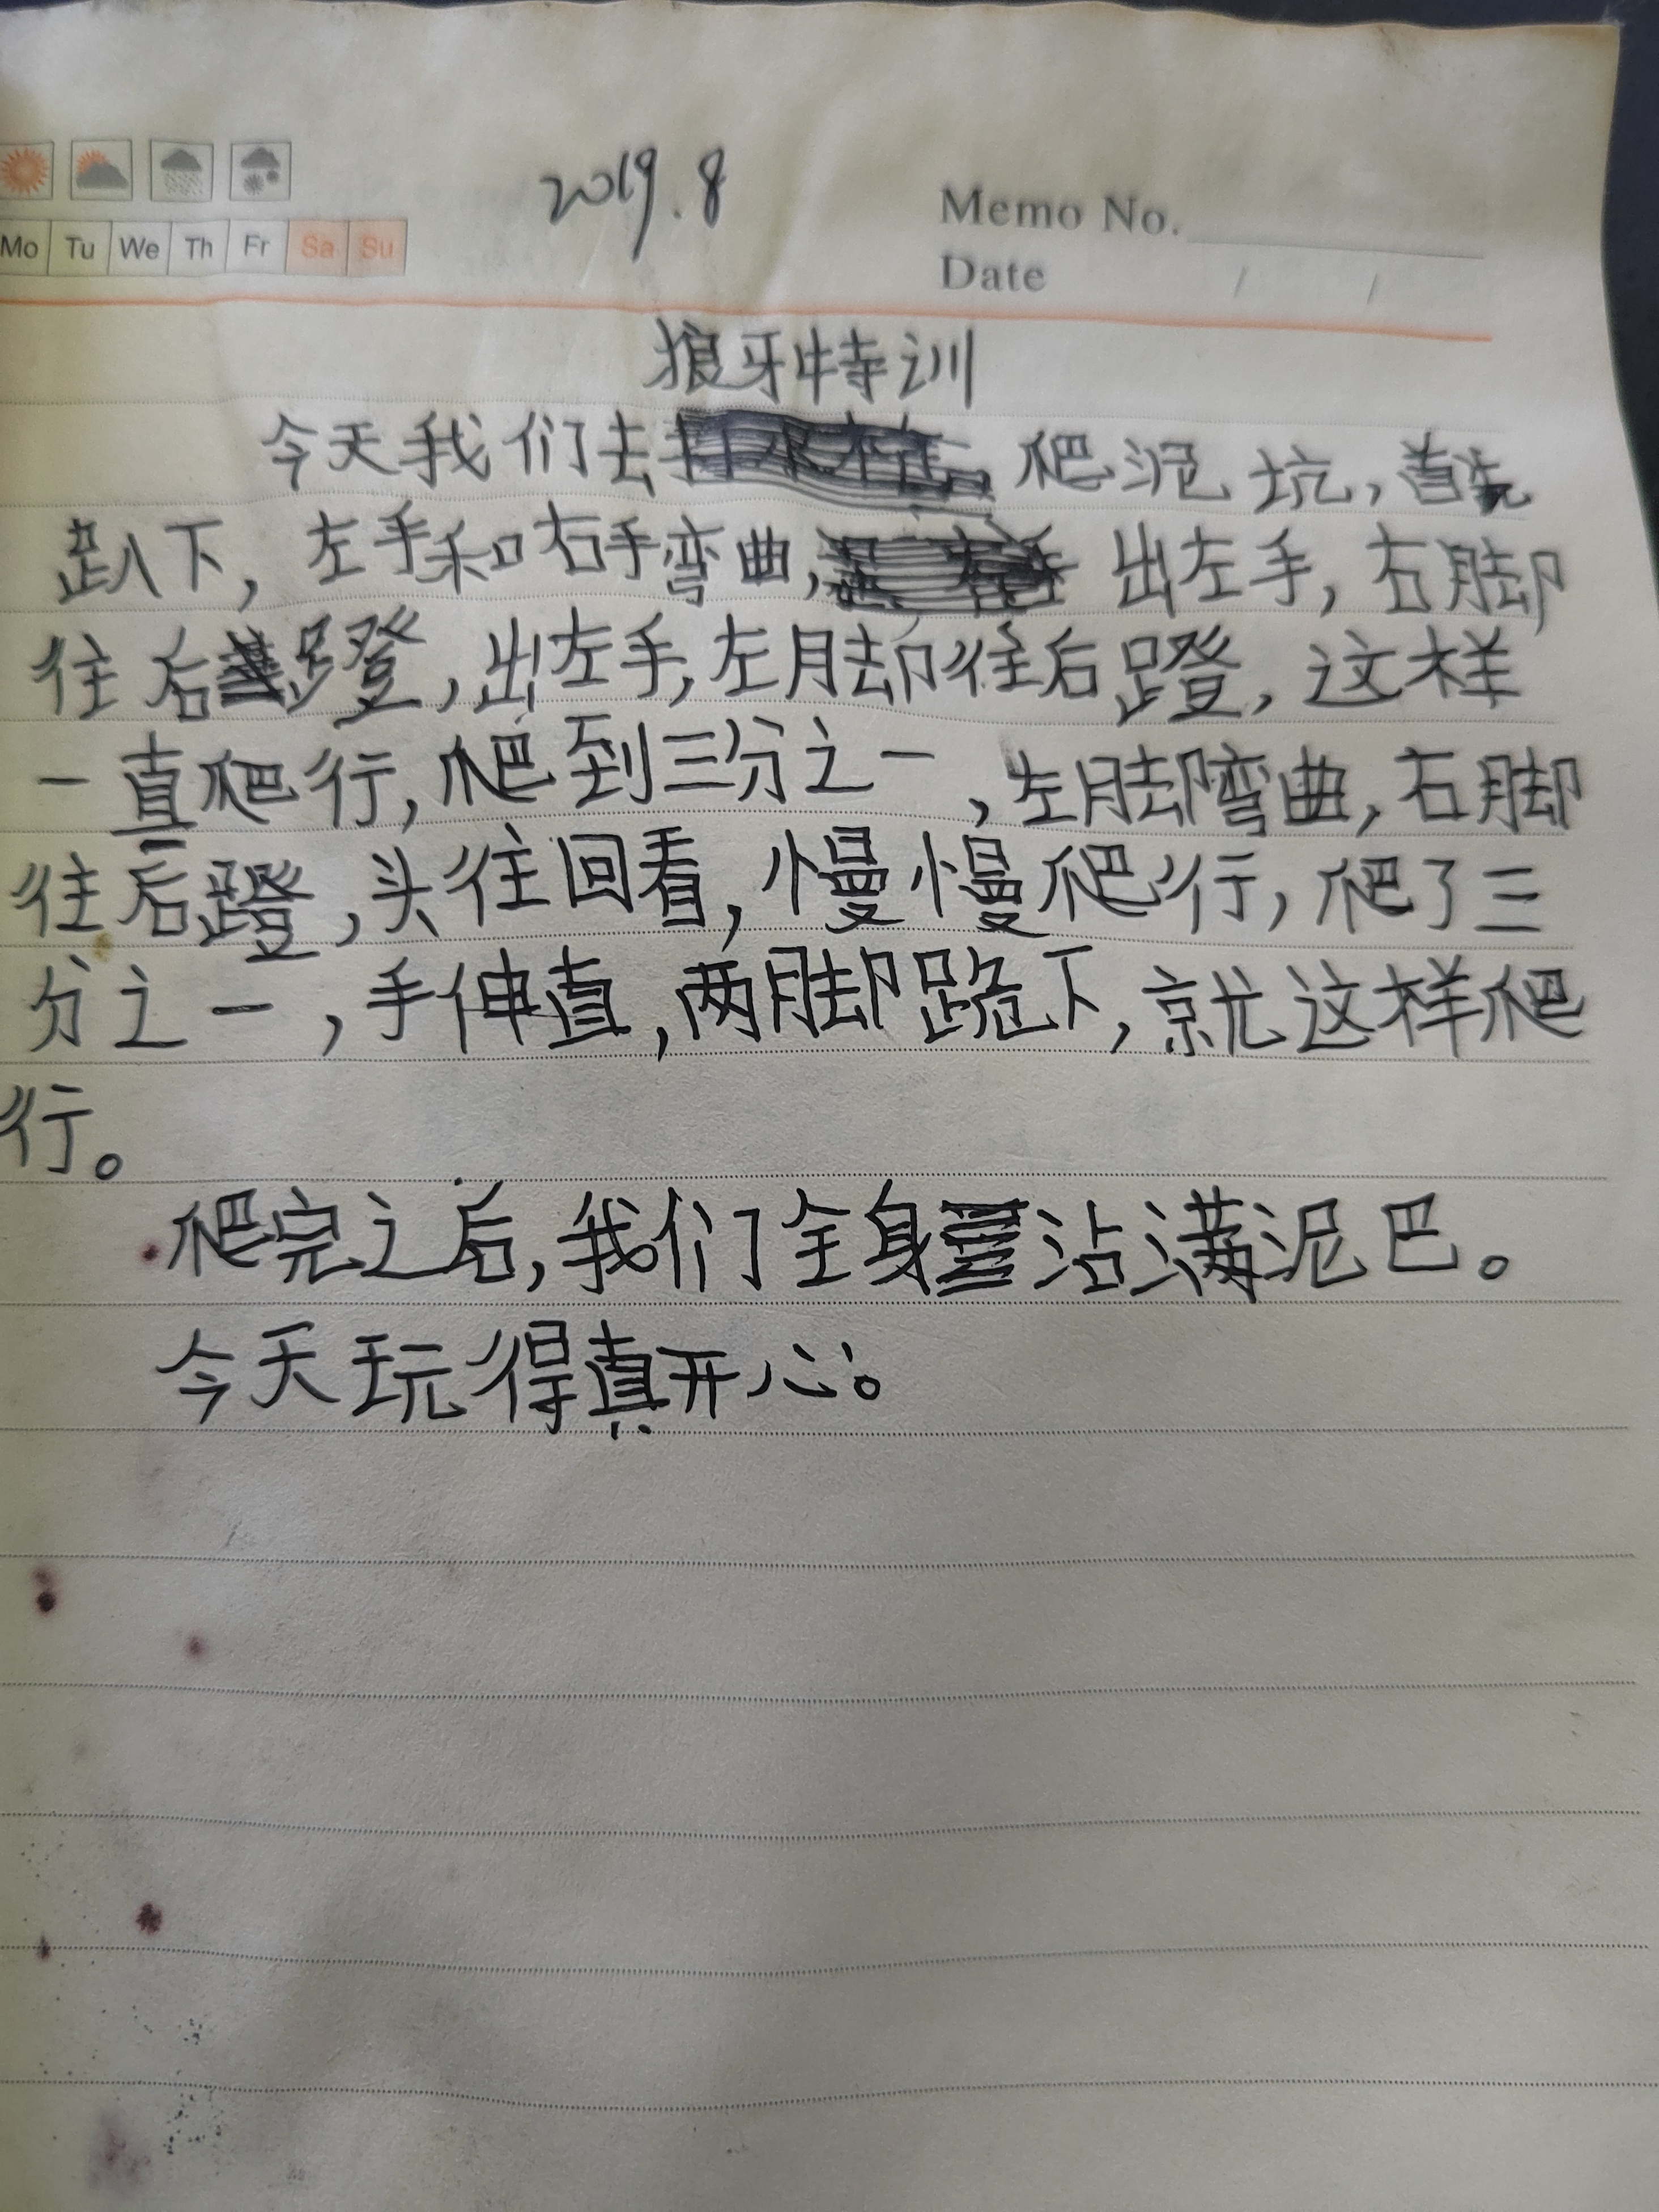 2019.8
Memo No.
Mo Tu We Th Fr Sa Su
Date / /
狼牙特训
今天我们去爬泥坑,首先
趴下,左手和右手弯曲,出左手,右脚
往后蹬,出左手,左脚往后蹬,这样
一直爬行,爬到三分之一,左脚弯曲,右脚
往后蹬,头往回看,慢慢爬行,爬了三
分之一,手伸直,两脚跪下,就这样爬
行。
爬完之后,我们全身沾满泥巴。
今天玩得真开心。